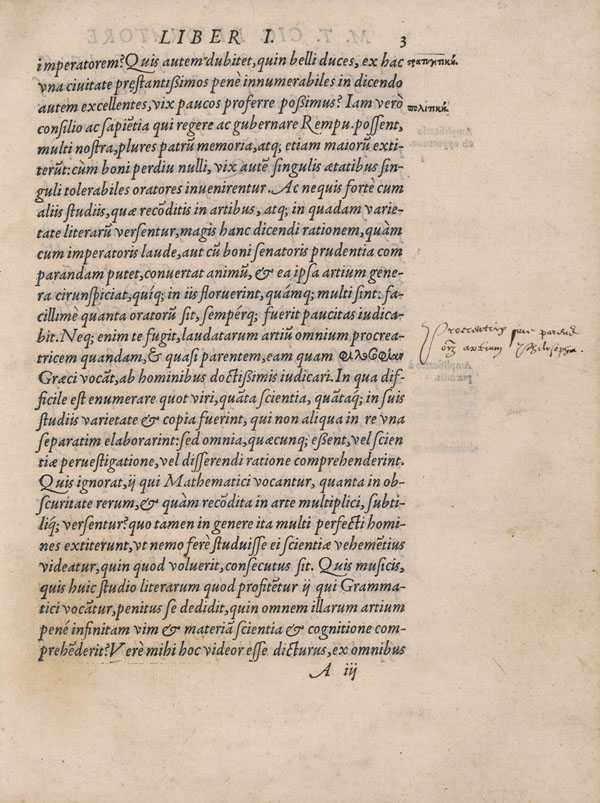 LIBER I. 3
imperatorem? Quis autem dubitet, quin belli duces, ex hac
vna ciuitate prestantißimos penè innumerabiles in dicendo
autem excellentes, vix paucos proferre poßimus? Iam verò
consilio ac sapiẽtia qui regere ac gubernare Rempu. possent,
multi nostra, plures patrũ memoria, atq; etiam maiorũ exti-
terũt: cùm boni perdiu nulli, vix autẽ singulis ætatibus sin-
guli tolerabiles oratores inuenirentur. Ac nequis fortè cum
aliis studiis, quæ recõditis in artibus, atq; in quadam varie-
tate literarũ versentur, magis hanc dicendi rationem, quàm
cum imperatoris laude, aut cũ boni senatoris prudentia com
parandam putet, conuertat animũ, & ea ipsa artium gene-
ra cirunspiciat, quíq; in iis floruerint, quámq; multi sint: fa-
cillimè quanta oratorũ sit, sempérq; fuerit paucitas iudica-
bit. Neq; enim te fugit, laudatarum artiũ omnium procrea-
tricem quandam, & quasi parentem, eam quam φιλοσοφίαν
Græci vocãt, ab hominibus doctißimis iudicari. In qua dif-
ficile est enumerare quot viri, quãta scientia, quãtaq; in suis
studiis varietate & copia fuerint, qui non aliqua in re vna
separatim elaborarint: sed omnia, quæcunq; essent, vel scien
tiæ peruestigatione, vel disserendi ratione comprehenderint.
Quis ignorat, ÿ qui Mathematici vocantur, quanta in ob-
scuritate rerum, & quàm recõdita in arte multiplici, subti-
liq́; versentur? quo tamen in genere ita multi perfecti homi-
nes extiterunt, vt nemo ferè studuisse ei scientiæ vehemẽtius
videatur, quin quod voluerit, consecutus sit. Quis musicis,
quis huic studio literarum quod profitẽtur ÿ qui Gramma-
tici vocãtur, penitus se dedidit, quin omnem illarum artium
pené infinitam vim & materiã scientia & cognitione com-
prehẽderit? Verè mihi hoc videor esse dicturus, ex omnibus
A iij
πολιτικὴ.
Procreatrix que parens
artium Philosophia.